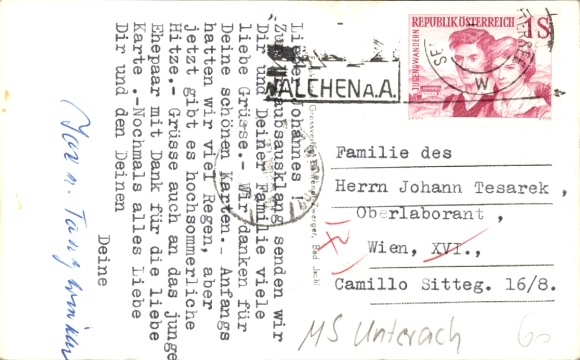 Lieber Johannes !
Zum Urlaubsausklang senden wir
Dir und Deiner Familie viele
liebe Grüsse.- Wir danken für
Deine schönen Karten.- Anfangs
hatten wir viel Regen, aber
jetzt gibt es hochsommerliche
Hitze.- Grüsse auch an das junge
Ehepaar mit Dank für die liebe
Karte .-Nochmals alles Liebe
Dir und den Deinen
Deine
REPUBLIK ÖSTERREICH 1S
JUGENDWANDERN
WALCHEN a.A.
Familie des
Herrn Johann Tesarek ,
Oberlaborant ,
Wien, XVI.,
IX
Camillo Sitteg. 16/8.
MS Unterach
60